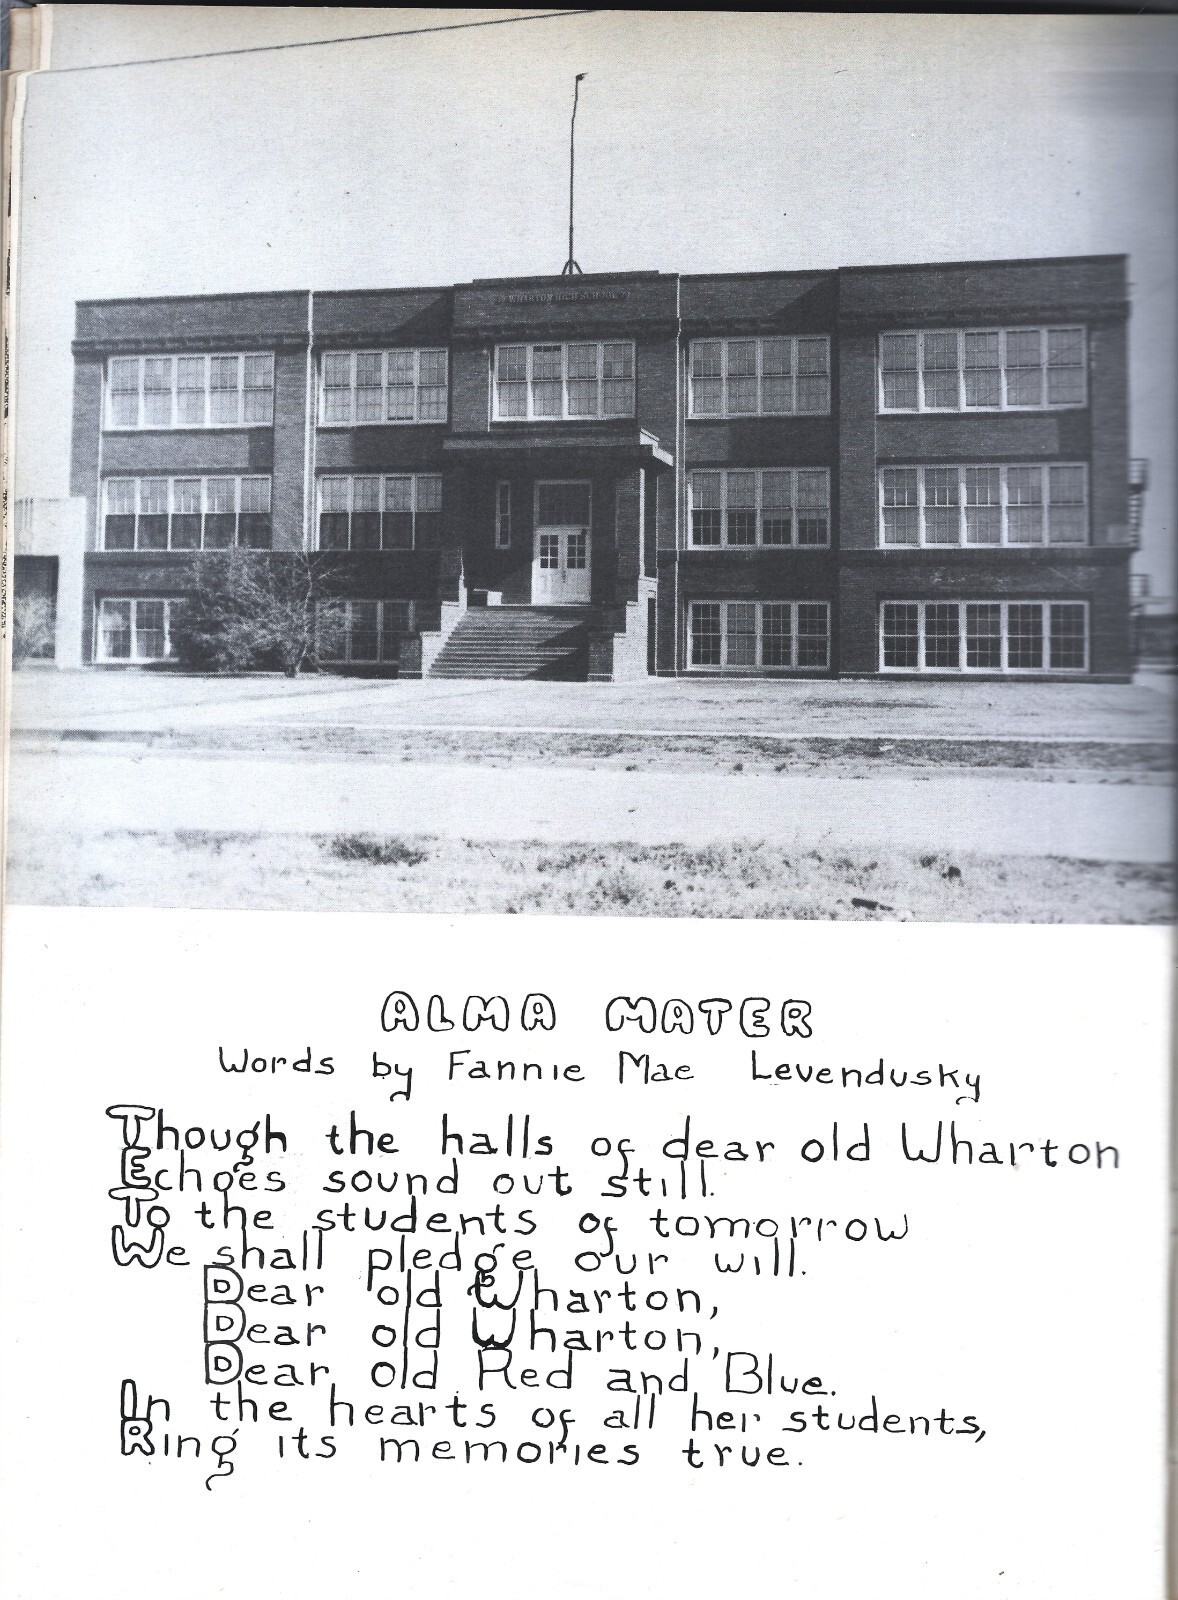 WHARTON HIGH SCHOOL
ALMA MATER
Words by Fannie Mae Levendusky
Though the halls of dear old Wharton
Echoes sound out still.
To the students of tomorrow
We shall pledge our will.
Dear old Wharton,
Dear old Wharton,
Dear old Red and Blue.
In the hearts of all her students,
Ring its memories true.